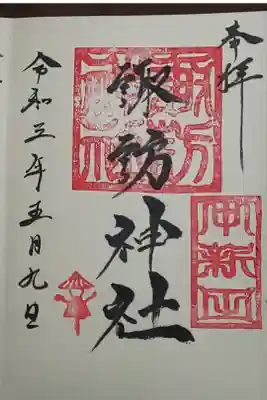 奉拝
諏訪神社
令和三年五月九日